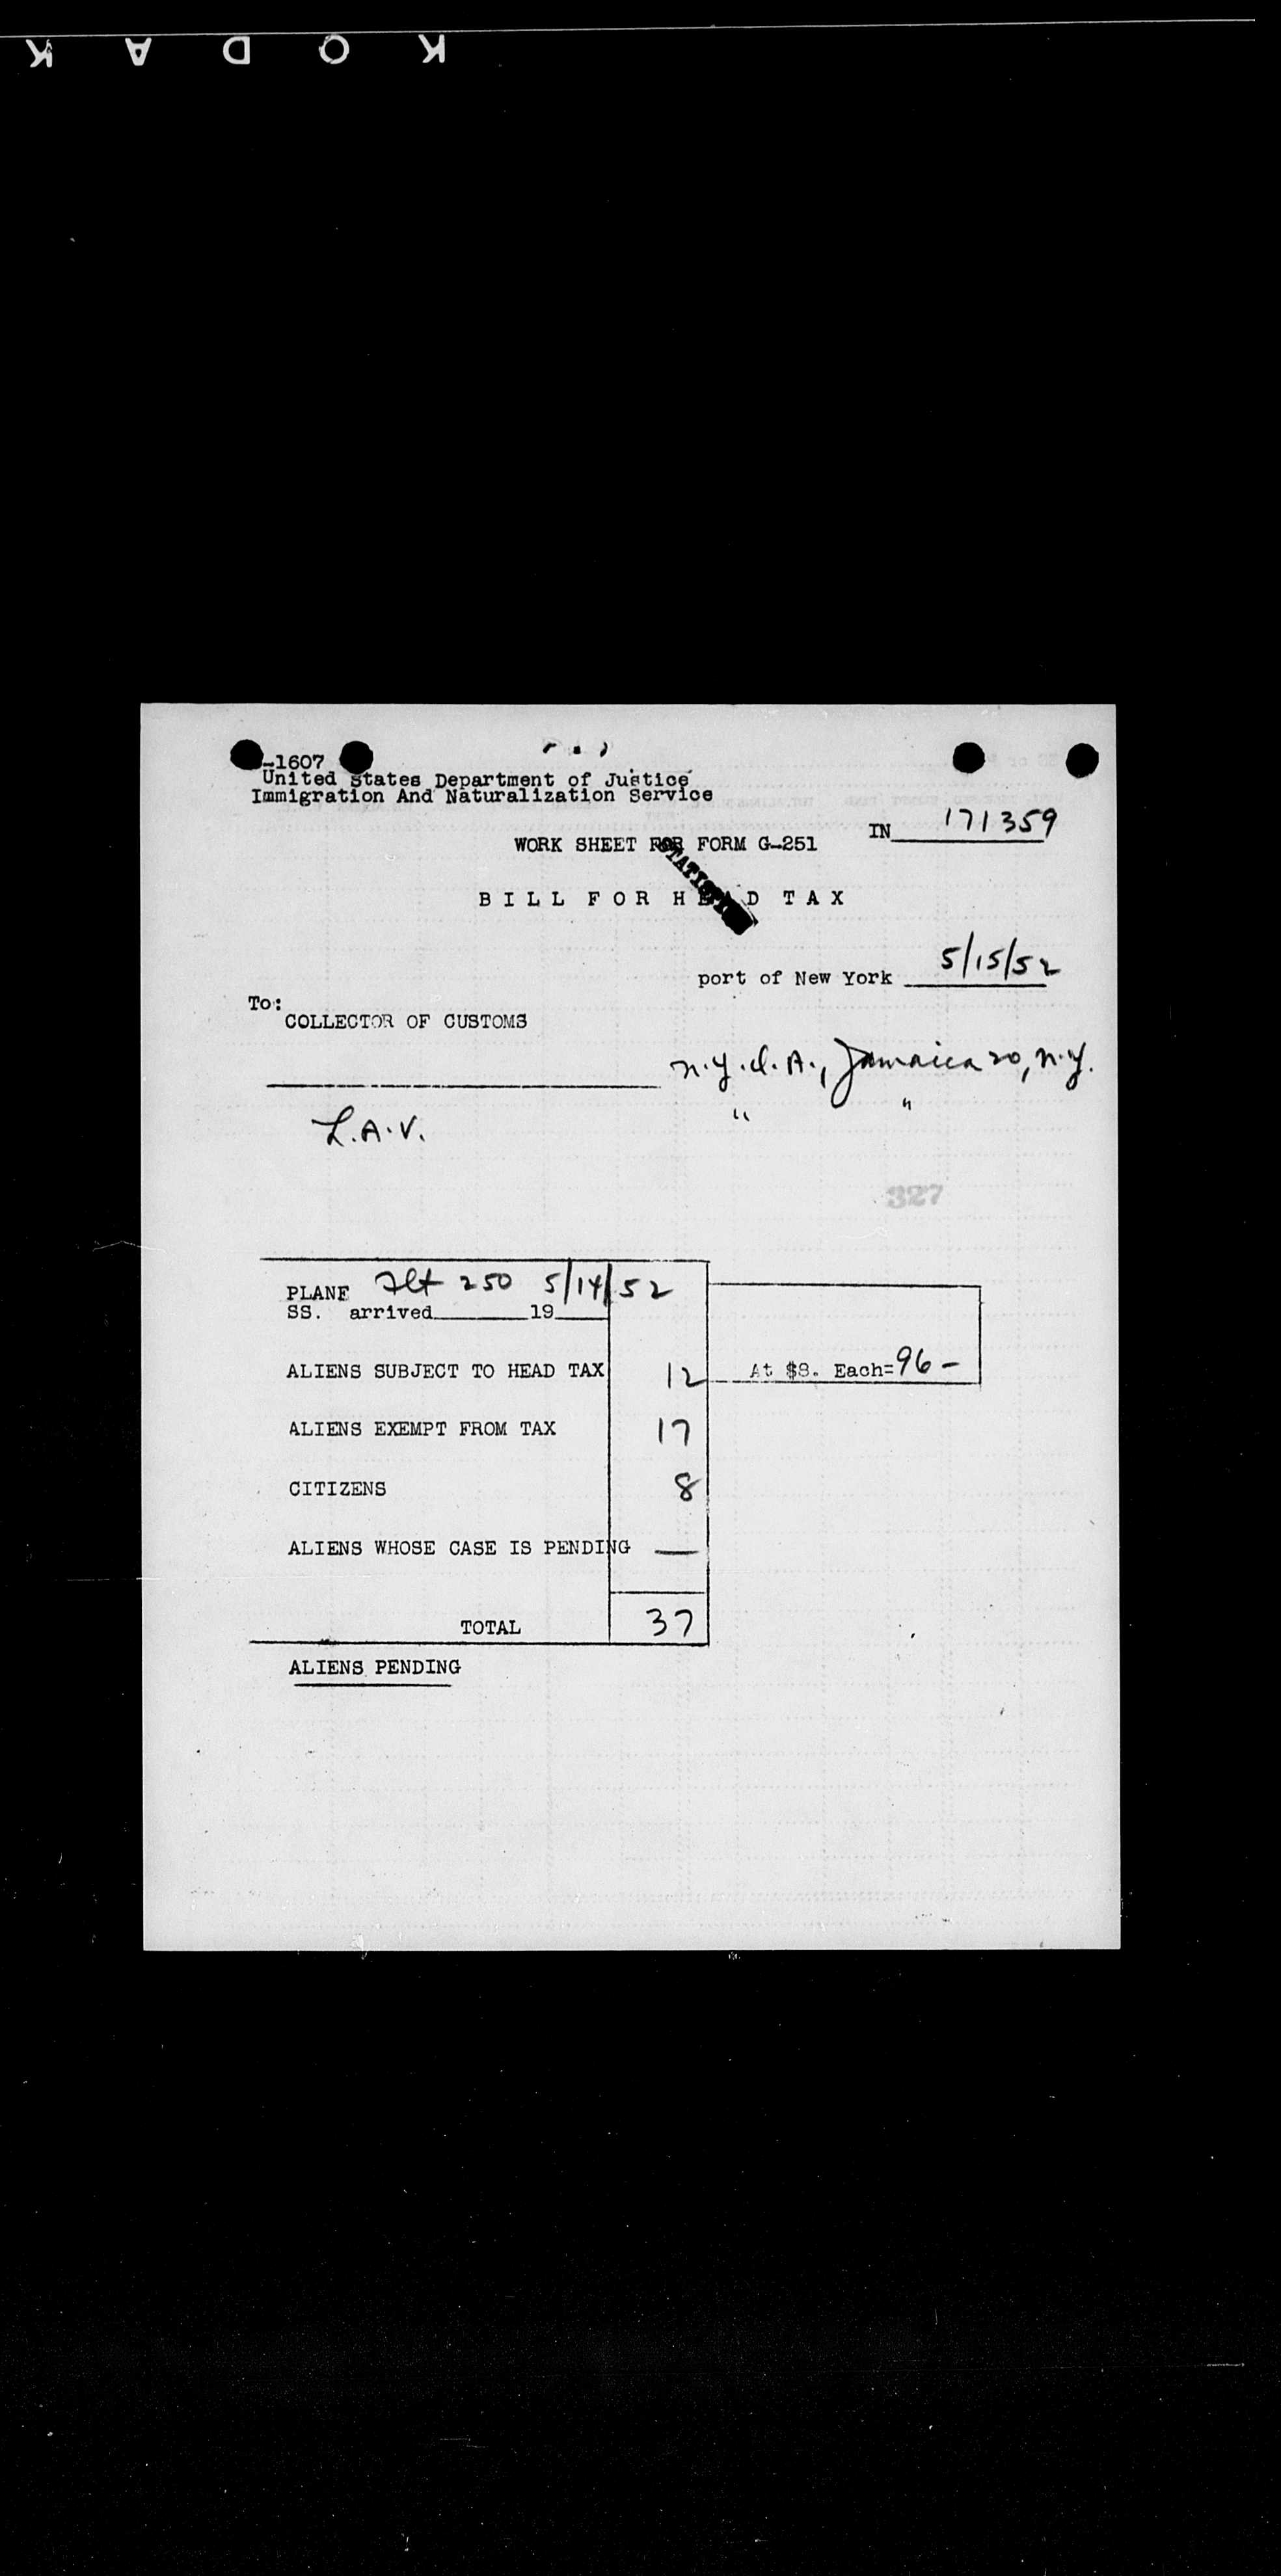 KODAK
-1607
United States Department of Justice
Immigration And Naturalization Service
IN 171359
WORK SHEET FOR FORM G-251
BILL FOR HEAD TAX
port of New York 5/15/52
To:
COLLECTOR OF CUSTOMS
N.Y.I.A., Jamaica 20, N.Y.
L.A.V. " "
327
PLANE Flt 250 5/14/52
SS. arrived 19
ALIENS SUBJECT TO HEAD TAX 12 At $8. Each= 96 –
ALIENS EXEMPT FROM TAX 17
CITIZENS 8
ALIENS WHOSE CASE IS PENDING —
TOTAL 37
ALIENS PENDING